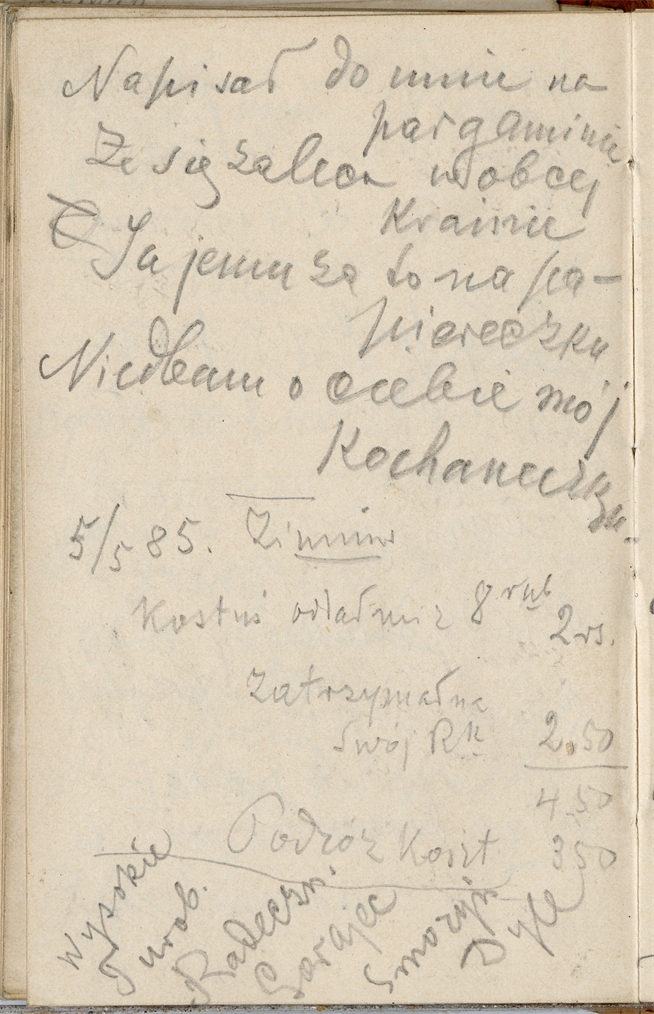 Napisał do mnie na
pargaminie
Że się zaleca w obcej
Krainie
Ja jemu za to na pa-
piereczku
Niedbam o ciebie mój
Kochaneczku.
5/5 85. Zimnw
Kostuś oddał mi z 8 rub
2 rs.
Zatrzymał na
Swój Rk 2.50
4.50
Podróż Koszt 3 50
Wysokie
Turob.
Radeczn.
Gorajec
Smoryń
Dyle